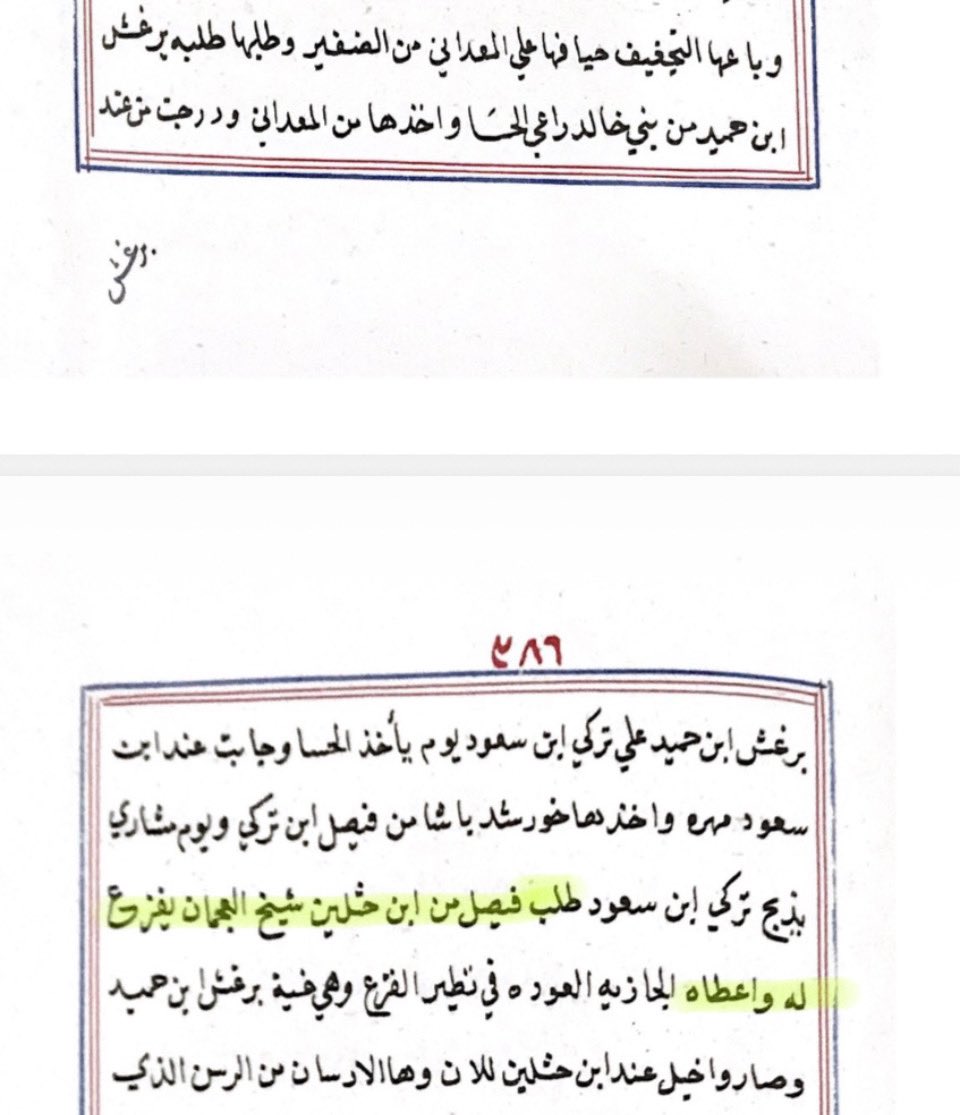 وباعها التجغيف حيافها علي المعداني من الضفير وطلبها طلبه برغش
ابن حميد من بني خالد راعي الحسا واخذها من المعداني ودرجت من عند
برغش
٣٨٦
برغش ابن حميد علي تركي ابن سعود يوم يأخذ الحسا وجابت عند ابن
سعود مهره واخذها خورشد باشا من فيصل ابن تركي ويوم مشاري
يذبح تركي ابن سعود طلب فيصل من ابن حثلين شيخ العجمان يفزع
له واعطاه الجازيه العوده في نظير الفزع وهي غنية برغش ابن حميد
وصاروا خيل عند ابن حثلين للان وهاالارسان من الرسن الذي